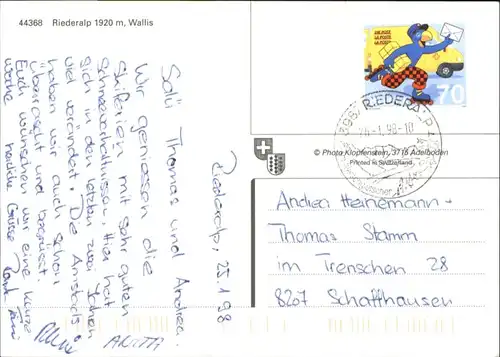 44368 Riederalp 1920 m, Wallis
Riederalp, 25.1.98
Salü Thomas und Andrea.
Wir geniessen die
Skiferien mit sehr guten
Schneeverhältnissen. Hier hat
sich in den letzten zwei Jahren
viel verändert. Die Amstads
haben wir auch schon
überrascht und begrüsst.
Euch wünschen wir eine kurze
Woche herzliche Grüsse
DIE POST
LA POSTE
LA POSTA
70
RIEDERALP
-1.98-10
© Photo Klopfenstein, 3715 Adelboden
Printed in Switzerland
Andrea Heinemann-
Thomas Stamm
im Trenschen 28
8207 Schaffhausen